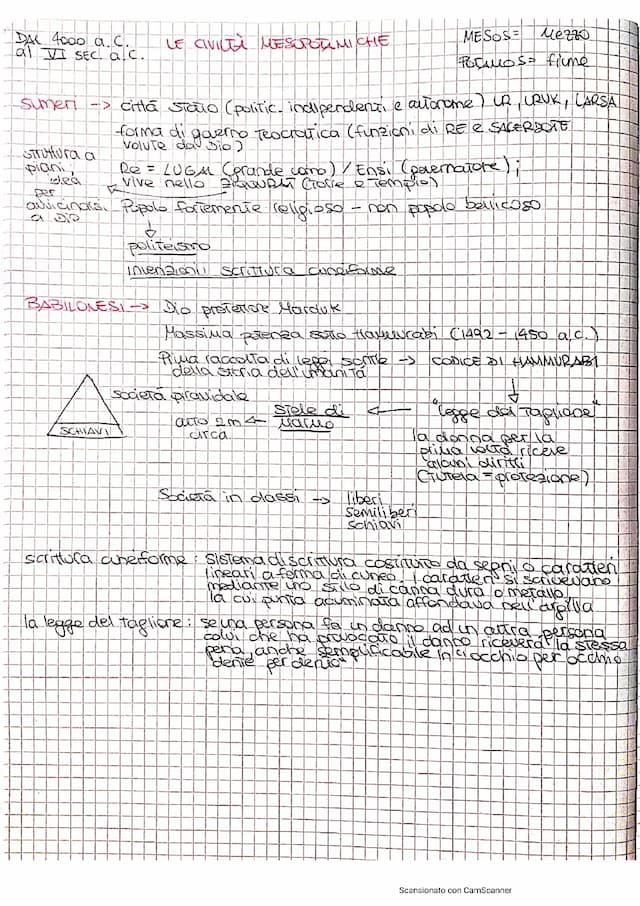 DAL 4000 a.C.
al VI sec. a.C.
LE CIVILTÀ MESOPOTAMICHE
MESOS = MEZZO
POTAMOS = fiume
SUMERI -> città stato (politic. indipendenti e autonome) UR, URUK, LARSA
forma di governo teocratica (funzioni di RE e SACERDOTE
volute da Dio)
struttura a
piani,
idea
per
avvicinarsi
a DIO
Re = LUGAL (grande uomo) / Ensi (governatore);
vive nello ZIQQURAT (Torre e Tempio)
Popolo fortemente religioso - non popolo bellicoso
politeismo
invenzioni: scrittura cuneiforme
BABILONESI -> Dio protettore Marduk
Massima potenza sotto Hammurabi (1492 - 1450 a.C.)
Prima raccolta di leggi scritte -> CODICE DI HAMMURABI
della storia dell'umanità
SCHIAVI
società piramidale
alto 2m <- stele di
circa
marmo
"legge del Taglione"
la donna per la
prima volta riceve
alcuni diritti
(TUTELA = protezione)
Società in classi -> liberi
semiliberi
schiavi
scrittura cuneiforme: sistema di scrittura costituito da segni o caratteri
lineari a forma di cuneo. I caratteri si scrivevano
mediante uno stilo di canna dura o metallo,
la cui punta acuminata affondava nell'argilla
la legge del taglione: se una persona fa un danno ad un altra persona
colui che ha provocato il danno riceverà la stessa
pena, anche semplificabile in "occhio per occhio
dente per dente"
Scansionato con CamScanner